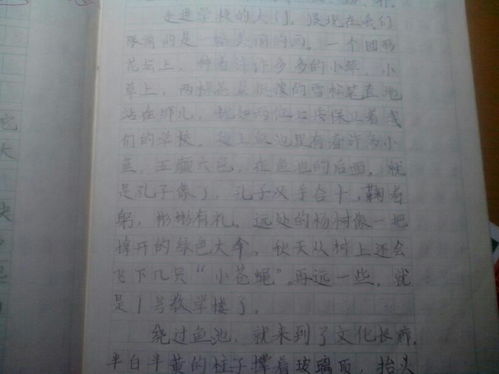 走进学校的大门，展现在我们
眼前的是一幅美丽的画。一个圆形
花坛上，种着许许多多的小草，小
草上，两棵的雪松笔直地
站在那儿，保卫着我
们的学校。鱼池里有着许多小
鱼，五颜六色，在鱼池的后面，就
是孔子像了，孔子双手合十，鞠着
躬，彬彬有礼。远处的杨树像一把
撑开的绿色大伞，秋天从树上还会
飞下几只“小苍蝇”。再远一些，就
是1号教学楼了。
绕过鱼池，就来到了文化长廊，
半白半黄的柱子撑着玻璃顶，抬头